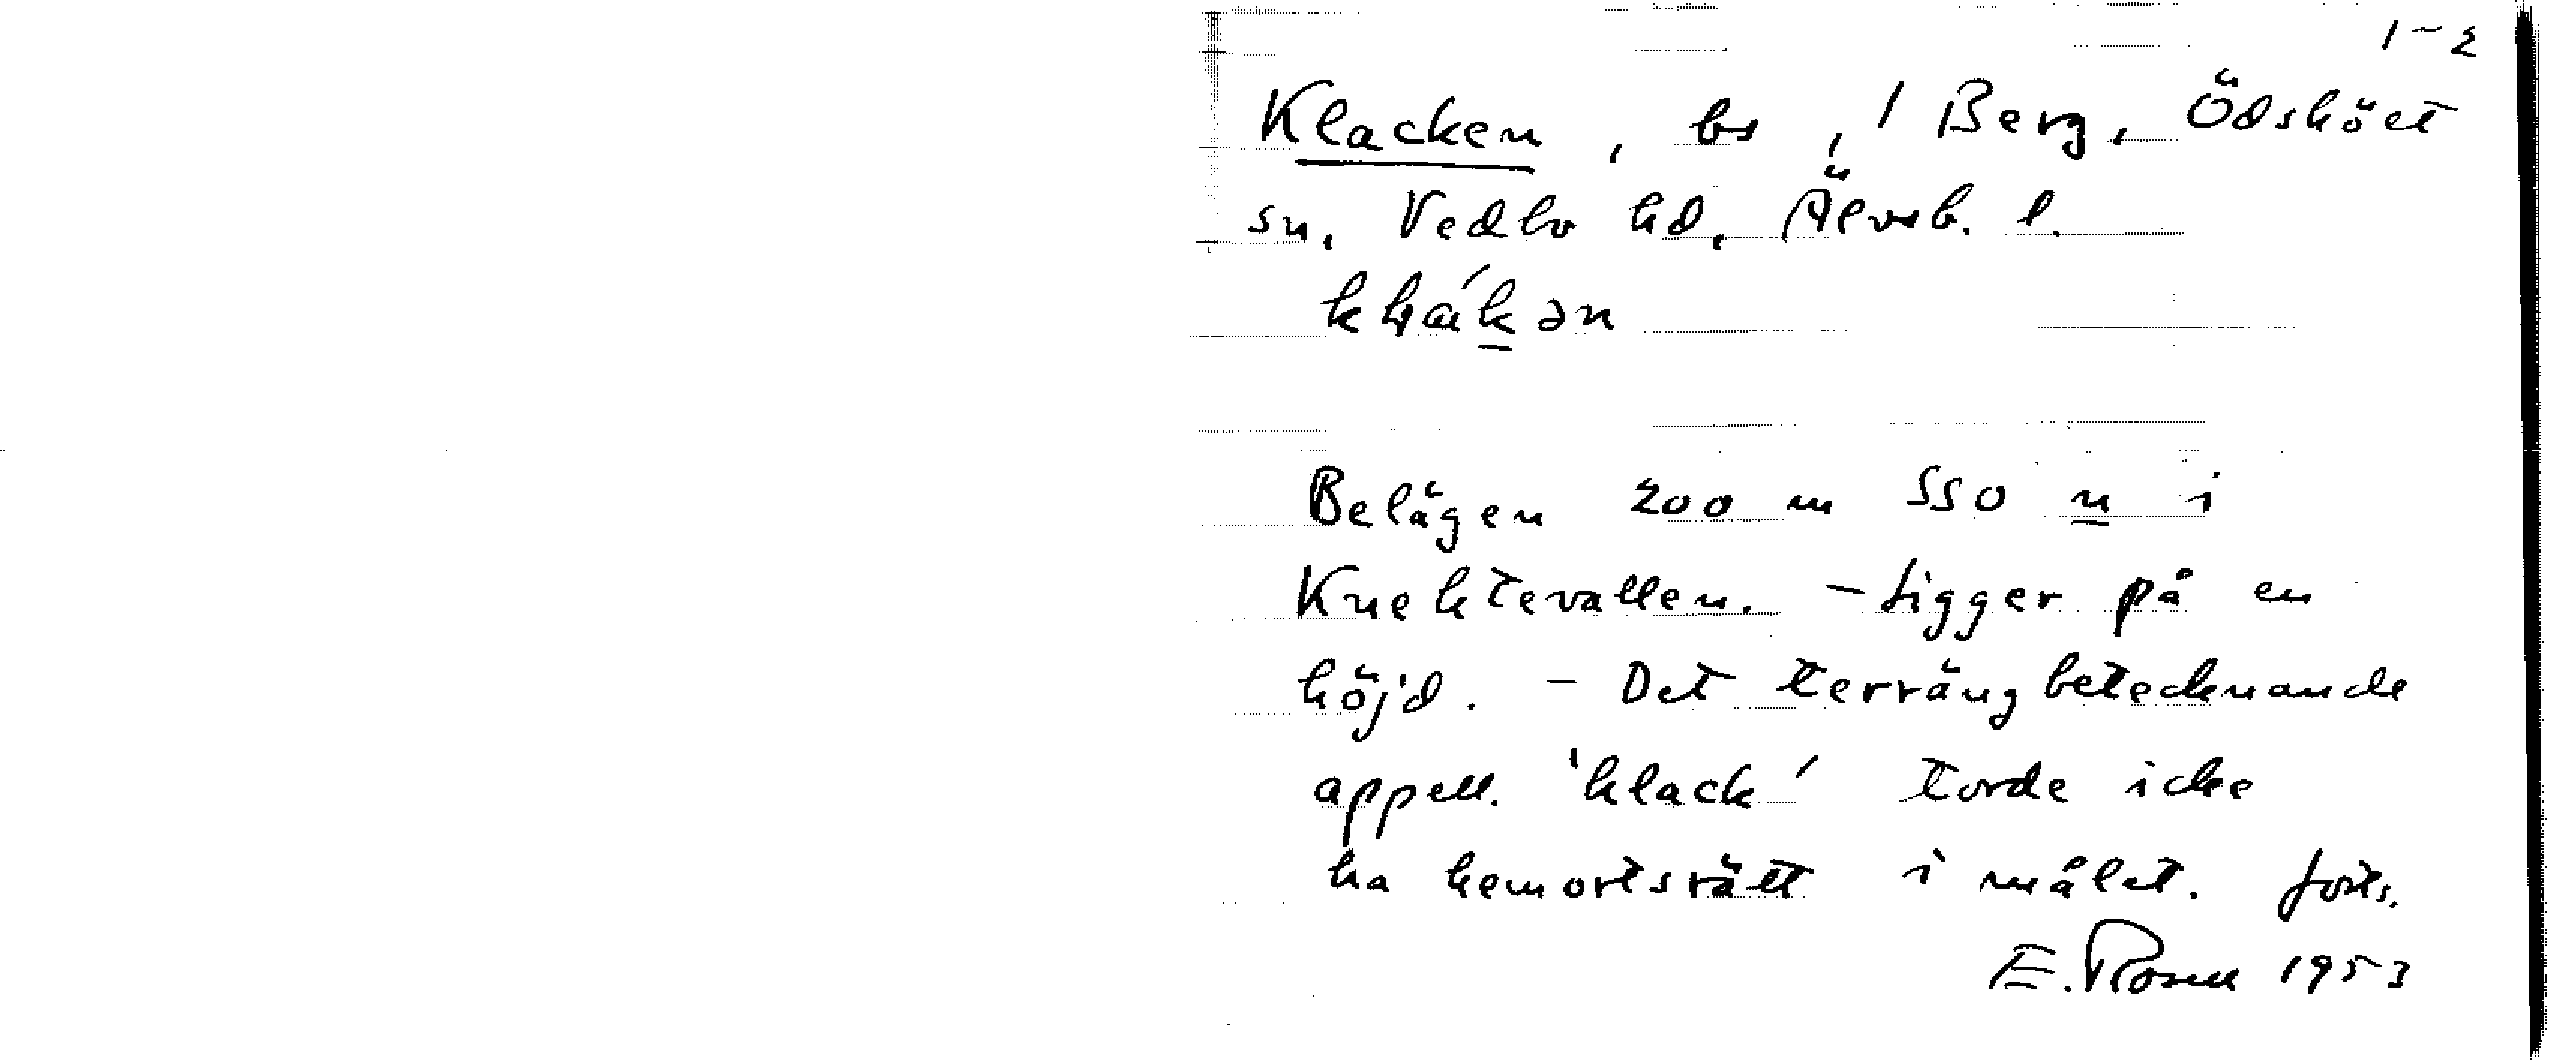 1-2
Klacken, bs, 1 Berg, Ödsköet
sn, Vedbo hd, Älvsb. l.
Belägen 200 m SSO n i
Knektevallen. - Ligger på en
höjd. - Det terrängbetecknande
appell. 'klack' torde icke
ha hemortsrätt i målet. forts.
E. Rosell 1953